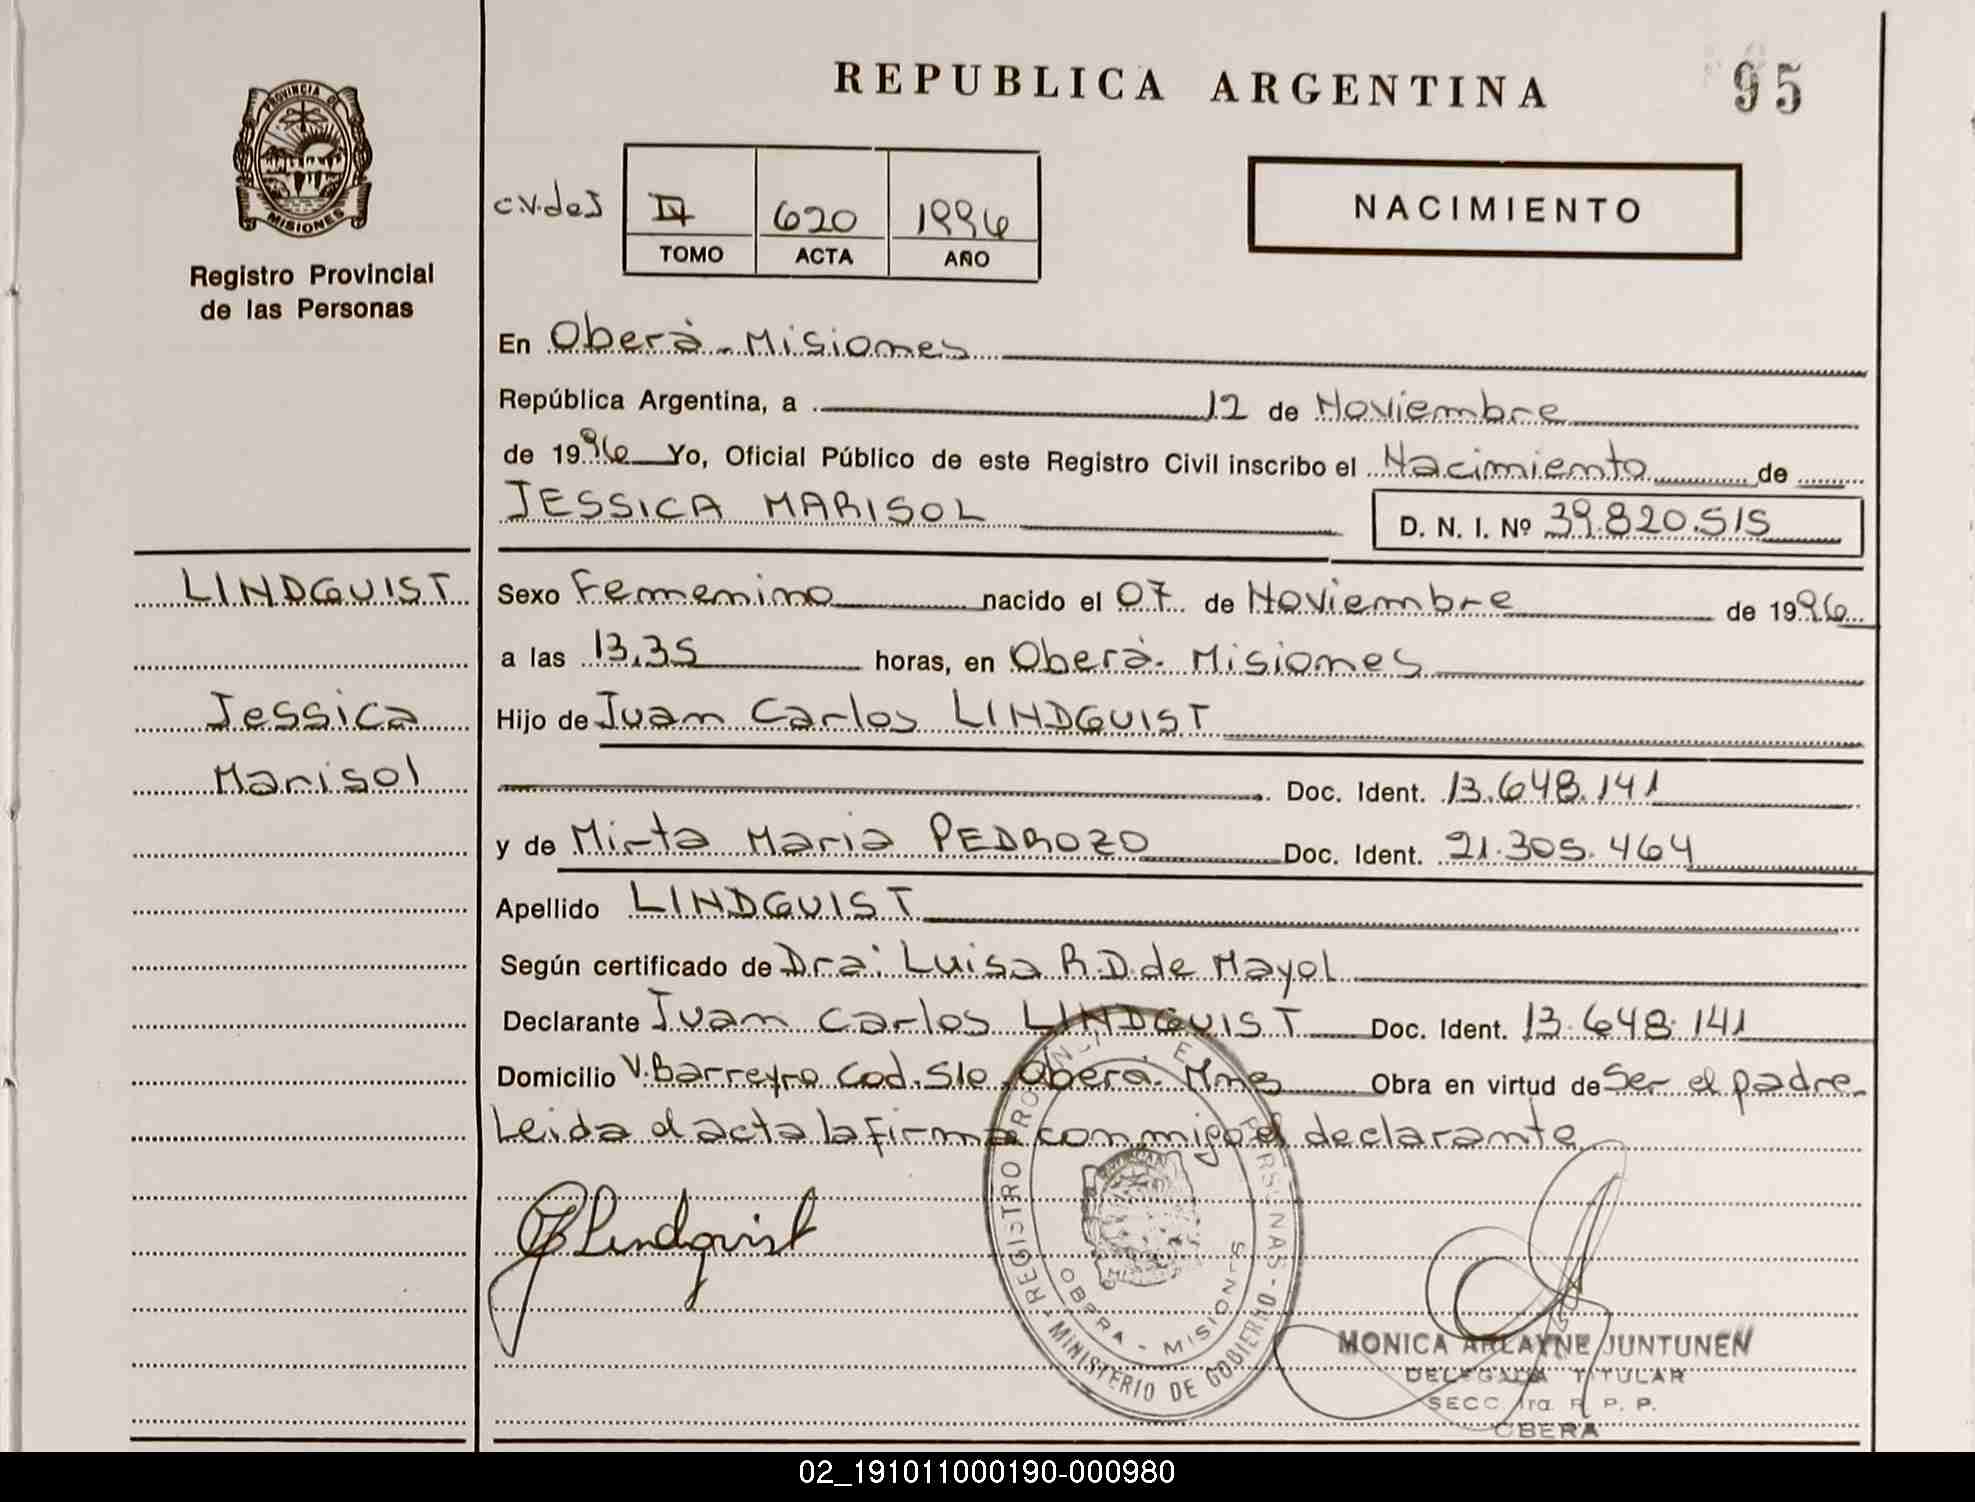 REPUBLICA ARGENTINA
95
PROVINCIA DE
MISIONES
Registro Provincial
de las Personas
c.v.deJ
IV 620 1996
TOMO ACTA AÑO
NACIMIENTO
En Oberà - Misiones
República Argentina, a 12 de Noviembre
de 1996 Yo, Oficial Público de este Registro Civil inscribo el Nacimiento de
JESSICA MARISOL
D. N. I. Nº 39.820.515
LINDQUIST
Jessica
Marisol
Sexo Femenino nacido el 07 de Noviembre de 1996
a las 13,35 horas, en Oberà - Misiones
Hijo de Juan Carlos LINDQUIST
Doc. Ident. 13.648.141
y de Mirta Maria PEDROZO Doc. Ident. 21.305.464
Apellido LINDQUIST
Según certificado de Dra: Luisa R.D.de Mayol
Declarante Juan Carlos LINDQUIST Doc. Ident. 13.648.141
Domicilio V.Barreyro Cod.510, Oberà. Mnes Obra en virtud de Ser el padre-
Leida el acta la firma conmigo el declarante
Lindqvist
REGISTRO PROVINCIAL DE PERSONAS - MINISTERIO DE GOBIERNO
OBERA - MISIONES
MONICA ARLAYNE JUNTUNEN
DELEGADA TITULAR
SECC. 1ra. R. P. P.
OBERA
02_191011000190-000980